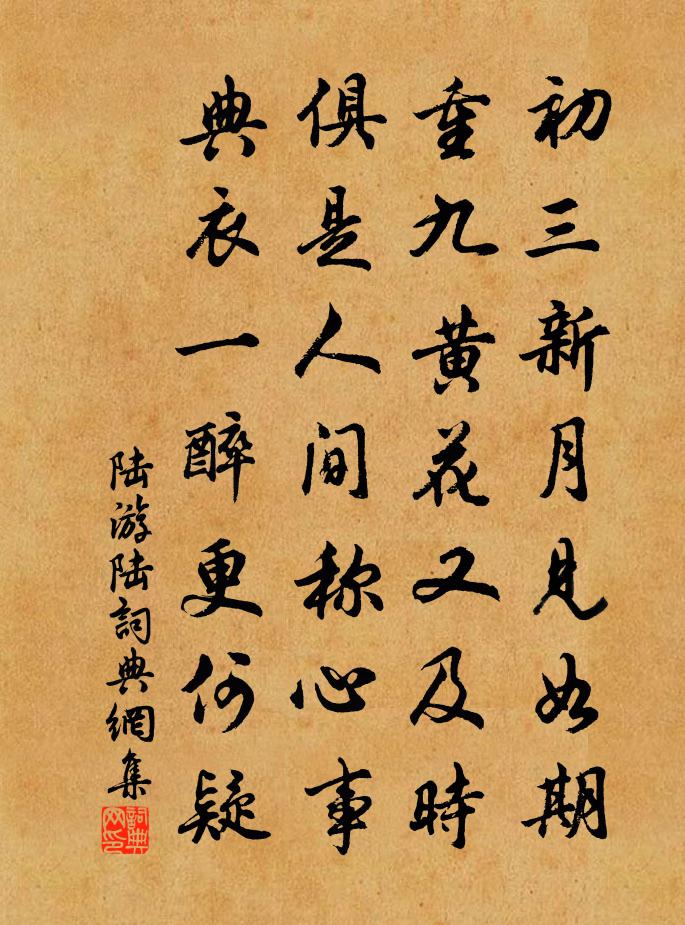 初三新月見如期
重九黄花又及時
俱是人间称心事
典衣一醉更何疑
陆游陆詞典網集
詞典網印